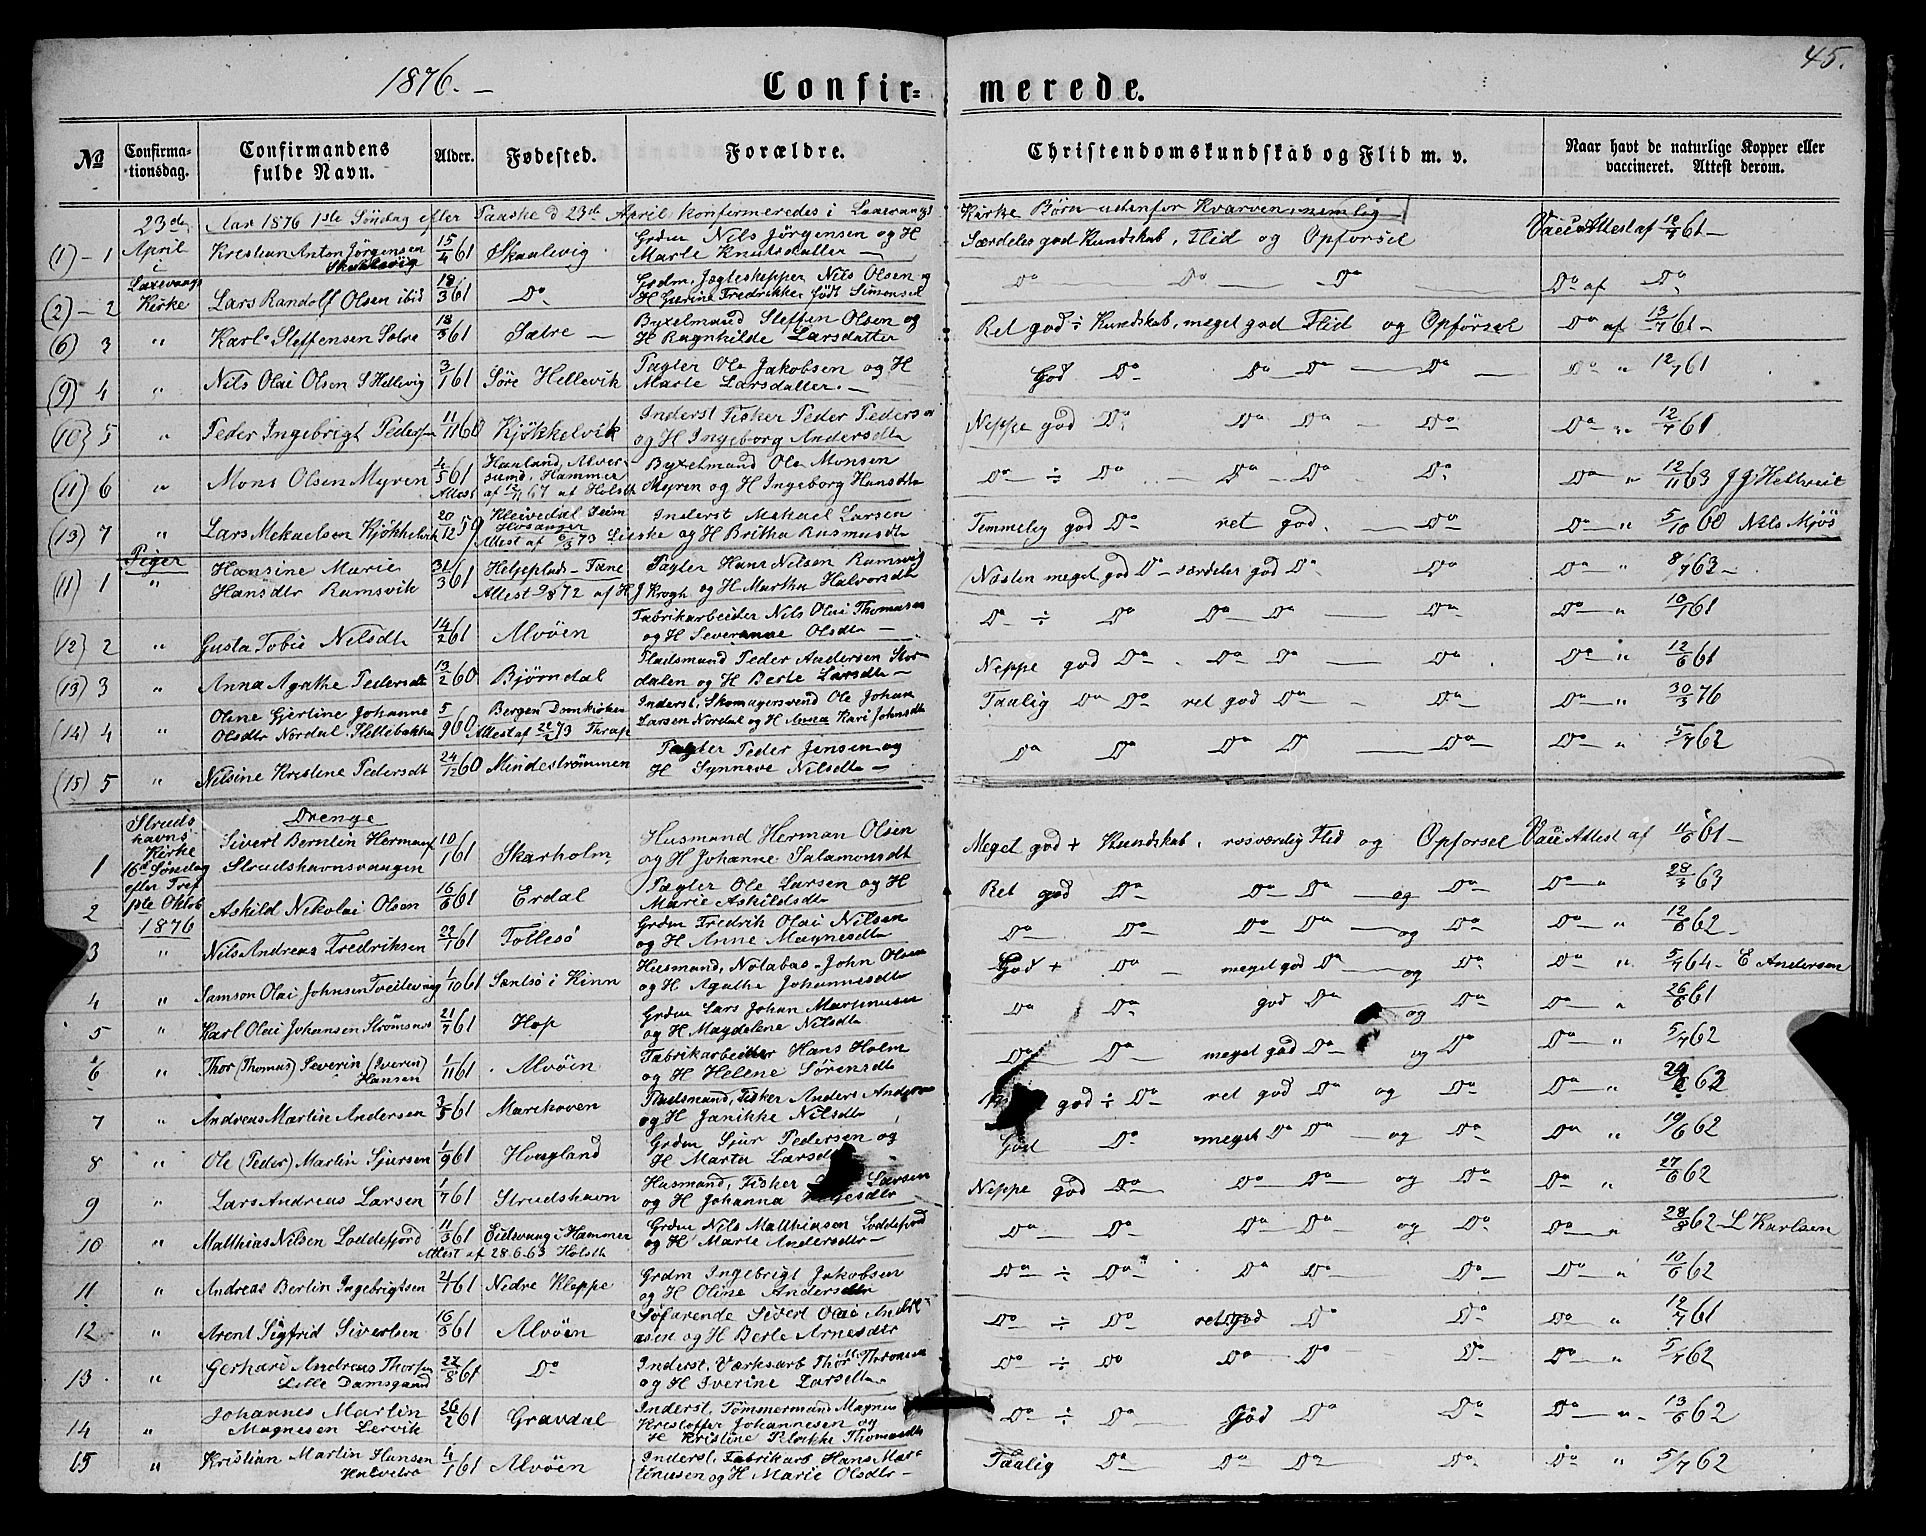 45.
1876. — Confir= merede.
№ Confirma- Confirmandens Alder. Fødested. Forældre. Christendomskundskab og Flid m. v. Naar havt de naturlige Kopper eller
tionsdag. fulde Navn. vaccineret. Attest derom.
23de Aar 1876 1ste Söndag efter Paaske d 23de April konfirmeredes i Laxevaags Kirke Börn udenfor Kvarven nemlig
April i Laxevaags Kirke
(1) - 1 Kristian Anton Jörgensen 15/4 61 Skaalevig Grdm Nils Jörgensen og H Særdeles god Kundskab, Flid og Opforsel Vacc Attest af 61 -
Skaalevig Marte Knutsdatter —
(2) - 2 Lars Randolf Olsen ibid 61 Do Grdm. Jægteskipper Nils Olsen og Do Do Do Do af Do
H Fredrikke födt Simonsd
(6) 3 " Karl Steffensen Sætre 61 Sætre — Byxelmand Steffen Olsen og Ret god ÷ Kundskab, meget god Flid og Opförsel Do af 13/7 61 -
H Ragnhilde Larsdatter
(9) 4 " Nils Olai Olsen S Hellevig 3/1 61 Söre Hellevik Pagter Ole Jakobsen og H God Do Do Do Do Do " 12/7 61
Marte Larsdatter. -
(10) 5 " Peder Ingebrigt Peders 11/11 60 Kjökkelvik Inderst Fisker Peder Peders Neppe god Do Do Do Do Do " 12/7 61.
og H Ingeborg Andersdt
(11) 6 " Mons Olsen Myren 61 Alver- Byxelmand Ole Monsen Do ÷ Do Do Do Do Do " 12/11 63
sund, Hammer
Attest af 12/11 67 af Holsth Myren og H Ingeborg Hansdt
(13) 7 " Lars Mekaelsen Kjökkelvik 20/12 59 Kleivedal Seim Inderst Mekael Larsen Temmelig god Do ret god. Do Do " 5/10 60 Nils Mjös
Hosanger
Attest af 73 og H Britha Rasmusdt
Piger
(11) 1 " Hansine Marie 31/3 61 Helgeplads - Fane Pagter Hans Nilsen Ramsvig Næsten meget god Do særdeles god Do Do Do " 8/7 63 -
Hansdtr Ramsvik Attest 72 af H J Krogh og H Martha Halvorsdt
(12) 2 " Gusta Tobie Nilsdt 14/2 61 Alvöen Fabrikarbeider Nils Olai Thomasen Do ÷ Do Do Do Do Do " 10/1 61
og H Severanne Olsdt —
(13) 3 " Anna Agathe Pedersdt 13/2 60 Bjørndal Pladsmand Peder Andersen Stor- Neppe god Do Do Do Do Do " 12/6 61
dalen og H Berte Larsdt —
(14) 4 " Oline Gjertine Johanne 5/9 60 Bergen Domkirken Inderst. Skomagersvend Ole Johan Taalig Do Do ret god Do Do Do " 30/3 76
Olsdtr Nordal Hellebakken Attest af 22/2 73 Thrap Larsen Nordal og H Anna Kari Johnsdt
(15) 5 " Nilsine Kristine Pedersdt 24/12 60 Mindeströmmen Pagter Peder Jensen og Do Do Do Do Do Do " 5/7 62
H Synneve Nilsdt —
Struds
havns Drenge
Kirke
16de Söndag
efter Tref
1ste Oktob
1876
1 Sivert Berntin Hermans 10/1 61 Skarholm Husmand Herman Olsen Meget god + Kundskab, rosværdig Flid og Opforsel Vacc Attest af 11/6 61 -
Strudshavnsvaagen og H Johanne Salamonsdt
2 Askild Nikolai Olsen 16/6 61 Erdal Pagter Ole Larsen og H Ret god Do Do Do og Do Do " 28/3 63
Marie Askildsdt
3 " Nils Andreas Fredriksen 61 Follesö Grdm Fredrik Olai Nilsen Do Do Do Do og Do Do " 12/6 62 -
og H Anne Magnesdt
4 " Samson Olai Johnsen Tveitevaag 1/10 61 Sæntsö i Kinn Husmand, Notabas John Olsen God + Do meget god Do og Do Do " 5/7 64 - E Andersen
og H Agathe Johannesdt
5 " Karl Olai Johansen Strömsnes 21/7 61 Hop Grdm Lars Johan Martinusen Do Do god Do og Do Do " 26/6 61
og H Magdelene Nilsdt
6 " Thor (Thomas) Severin (Iverin) 1/11 61 Alvöen Fabrikarbeider Hans Holm Do Do meget god Do og Do Do " 5/7 62
Hansen og H Helene Sörensdt
7 " Andreas Martin Andersen 3/5 61 Marihoven Pladsmand, Fisker Anders Anders god ÷ Do ret god Do og Do Do " 62
og H Janikke Nilsdt
8 " Ole (Peder) Martin Sjursen 1/9 61 Hougland Grdm Sjur Pedersen og God Do meget Do Do og Do Do " 19/6 62
H Marta Larsd
9 " Lars Andreas Larsen 1/7 61 Strudshavn Husmand, Fisker Larsen Neppe god Do Do Do og Do Do " 27/6 62
og H Johanna
10 " Matthias Nilsen Loddefjord 11/3 61 Eidsvaag i Hammer Grdm Nils Matthiasen Loddefjord Do Do Do Do og Do Do " 28/8 62 - L Karlsen
Attest af 28.6.63 Holsth og H Marte Andersdtr
11 " Andreas Bertin Ingebrigtsen 61 Nedre Kleppe Grdm Ingebrigt Jakobsen Do ÷ Do Do Do Do Do " 10/6 62
og H Oline Andersdtr
12 " Arent Sigfrid Sivertsen 16/3 61 Alvöen Söfarende Sivert Olai Andre- Do ÷ Do ret god Do Do Do " 12/7 61
asen og H Berte Arnesdtr
13 " Gerhard Andreas Thorsen 22/8 61 Do Inderst, Værksarb Thor Thoresen Do ÷ Do Do Do Do Do " 5/7 62
Lille Damsgaard og H Iverine Larsdt
14 " Johannes Martin 26/2 61 Gravdal Inderst, Tömmermand Magnus Do ÷ Do God Do Do Do " 13/6 62
Magnesen Lervik Kristoffer Johannesen og
H Kristine Rebikke Thomasdt
15 " Kristian Martin Hansen 1/1 61 Alvöen Inderst, Fabrikarb Hans Mar- Taalig Do Do Do Do Do " 5/7 62
tinusen og H Marie Olsdtr -